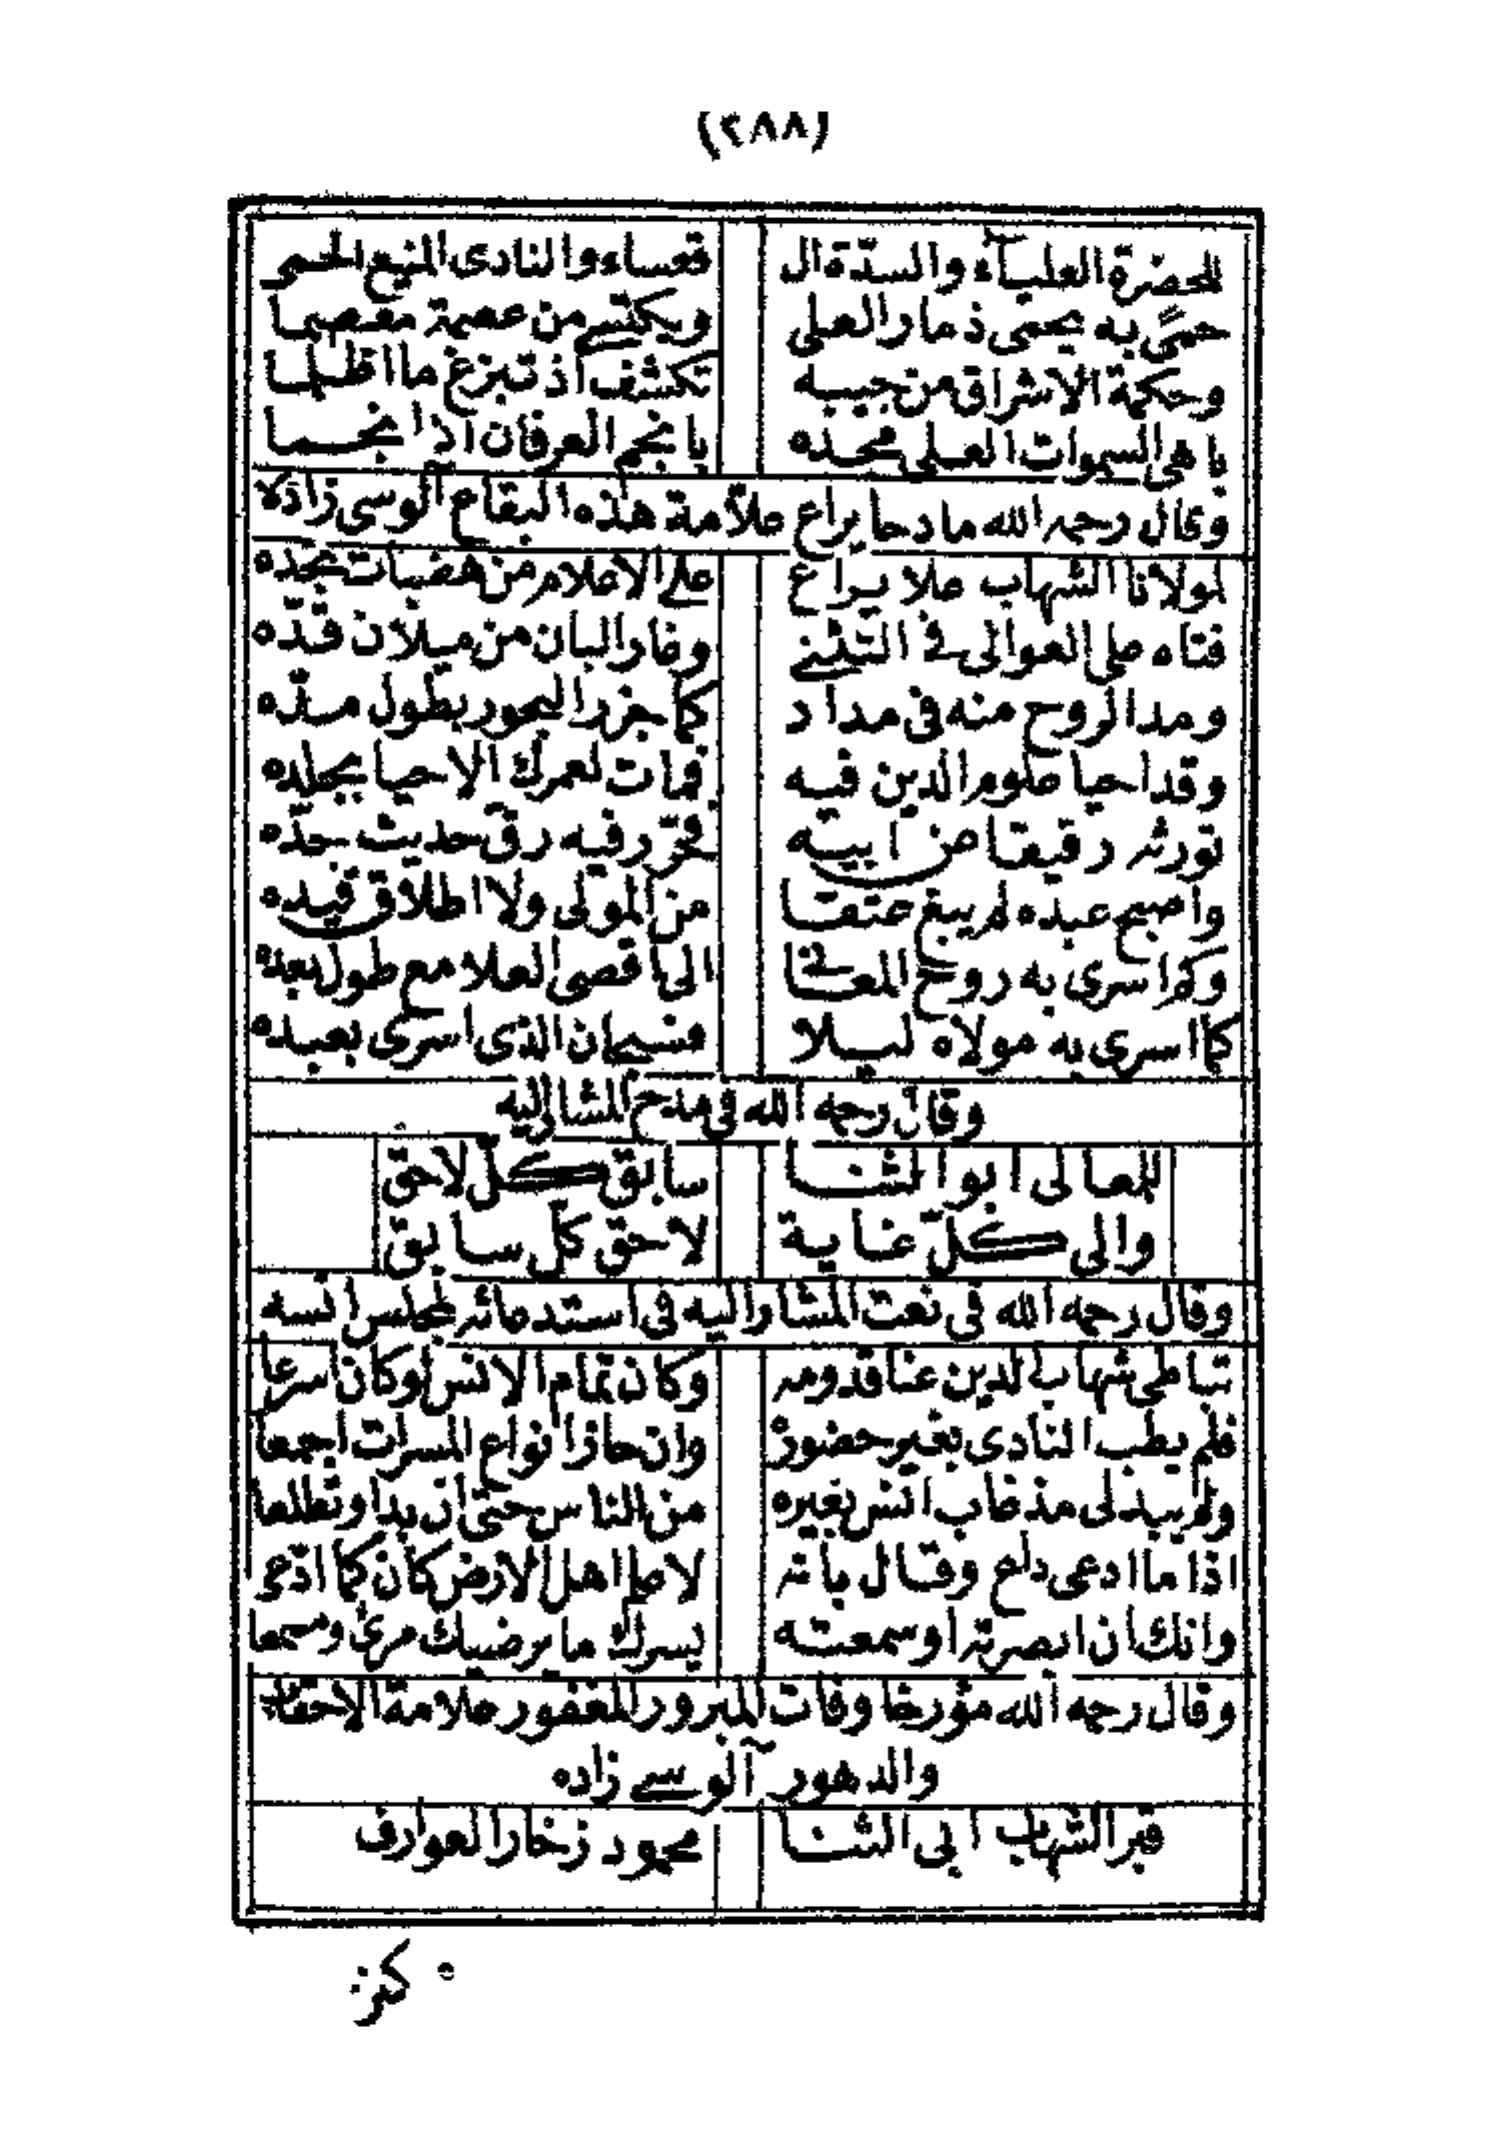 (٢٨٨)
للحضرة العلياء والسدّة ال قعساء والنادى المنيع الحمى
حمىً به يحمى ذمار العلى ويكتسے من عصمة معصما
وحكمة الاشراق من جيبه تكشف اذ تبزغ ما اظلما
باهى السموات العلى مجده يا نجم العرفان اذا نجما
وقال رحمه الله مادحا يراع علّامة هذه البقاع آلوسى زاده
لمولانا الشهاب علا يراع علے الاعلام من هضبات مجده
فتاه على العوالى فى التثنے وغار البان من ميلان قدّه
ومد الروح منه فى مداد كما جزر البحور بطول مدّه
وقد احيا علوم الدين فيه فمات لعمرك الاحيا بجلده
تورثه رقيقا عن ابيه فحرّر فيه رق حديث جدّه
واصبح عبده لم يبغ عتقا من المولى ولا اطلاق قيده
وكم اسرى به روح المعانى الى اقصى العلا مع طول بعده
كما اسرى به مولاه ليلا فسبحان الذى اسرى بعبده
وقال رحمه الله فى مدح المشار اليه
للمعالى ابو الثنا سابق كلّ لاحق
والى كلّ غاية لاحق كل سابق
وقال رحمه الله فى نعت المشار اليه فى استدعائه لمجلس انسه
تباطى شهاب الدين عنا قدومه وكان تمام الانس لو كان اسرعا
فلم يطب النادى بغير حضوره وان حاز انواع المسرات اجمعا
ولم يبد لى مذ غاب انس بغيره من الناس حتى ان بدا وتطلعا
اذا ما ادعى داع وقال بانه لاعلا اهل الارض كان كما ادّعى
وانك ان ابصرته او سمعته يسرك ما يرضيك مرئ ومسمعا
وقال رحمه الله مؤرخا وفات المبرور المغفور علامة الاحقاب
والدهور آلوسے زاده
قبر الشهاب ابى الثنا محمود زخار العوارف
كنز